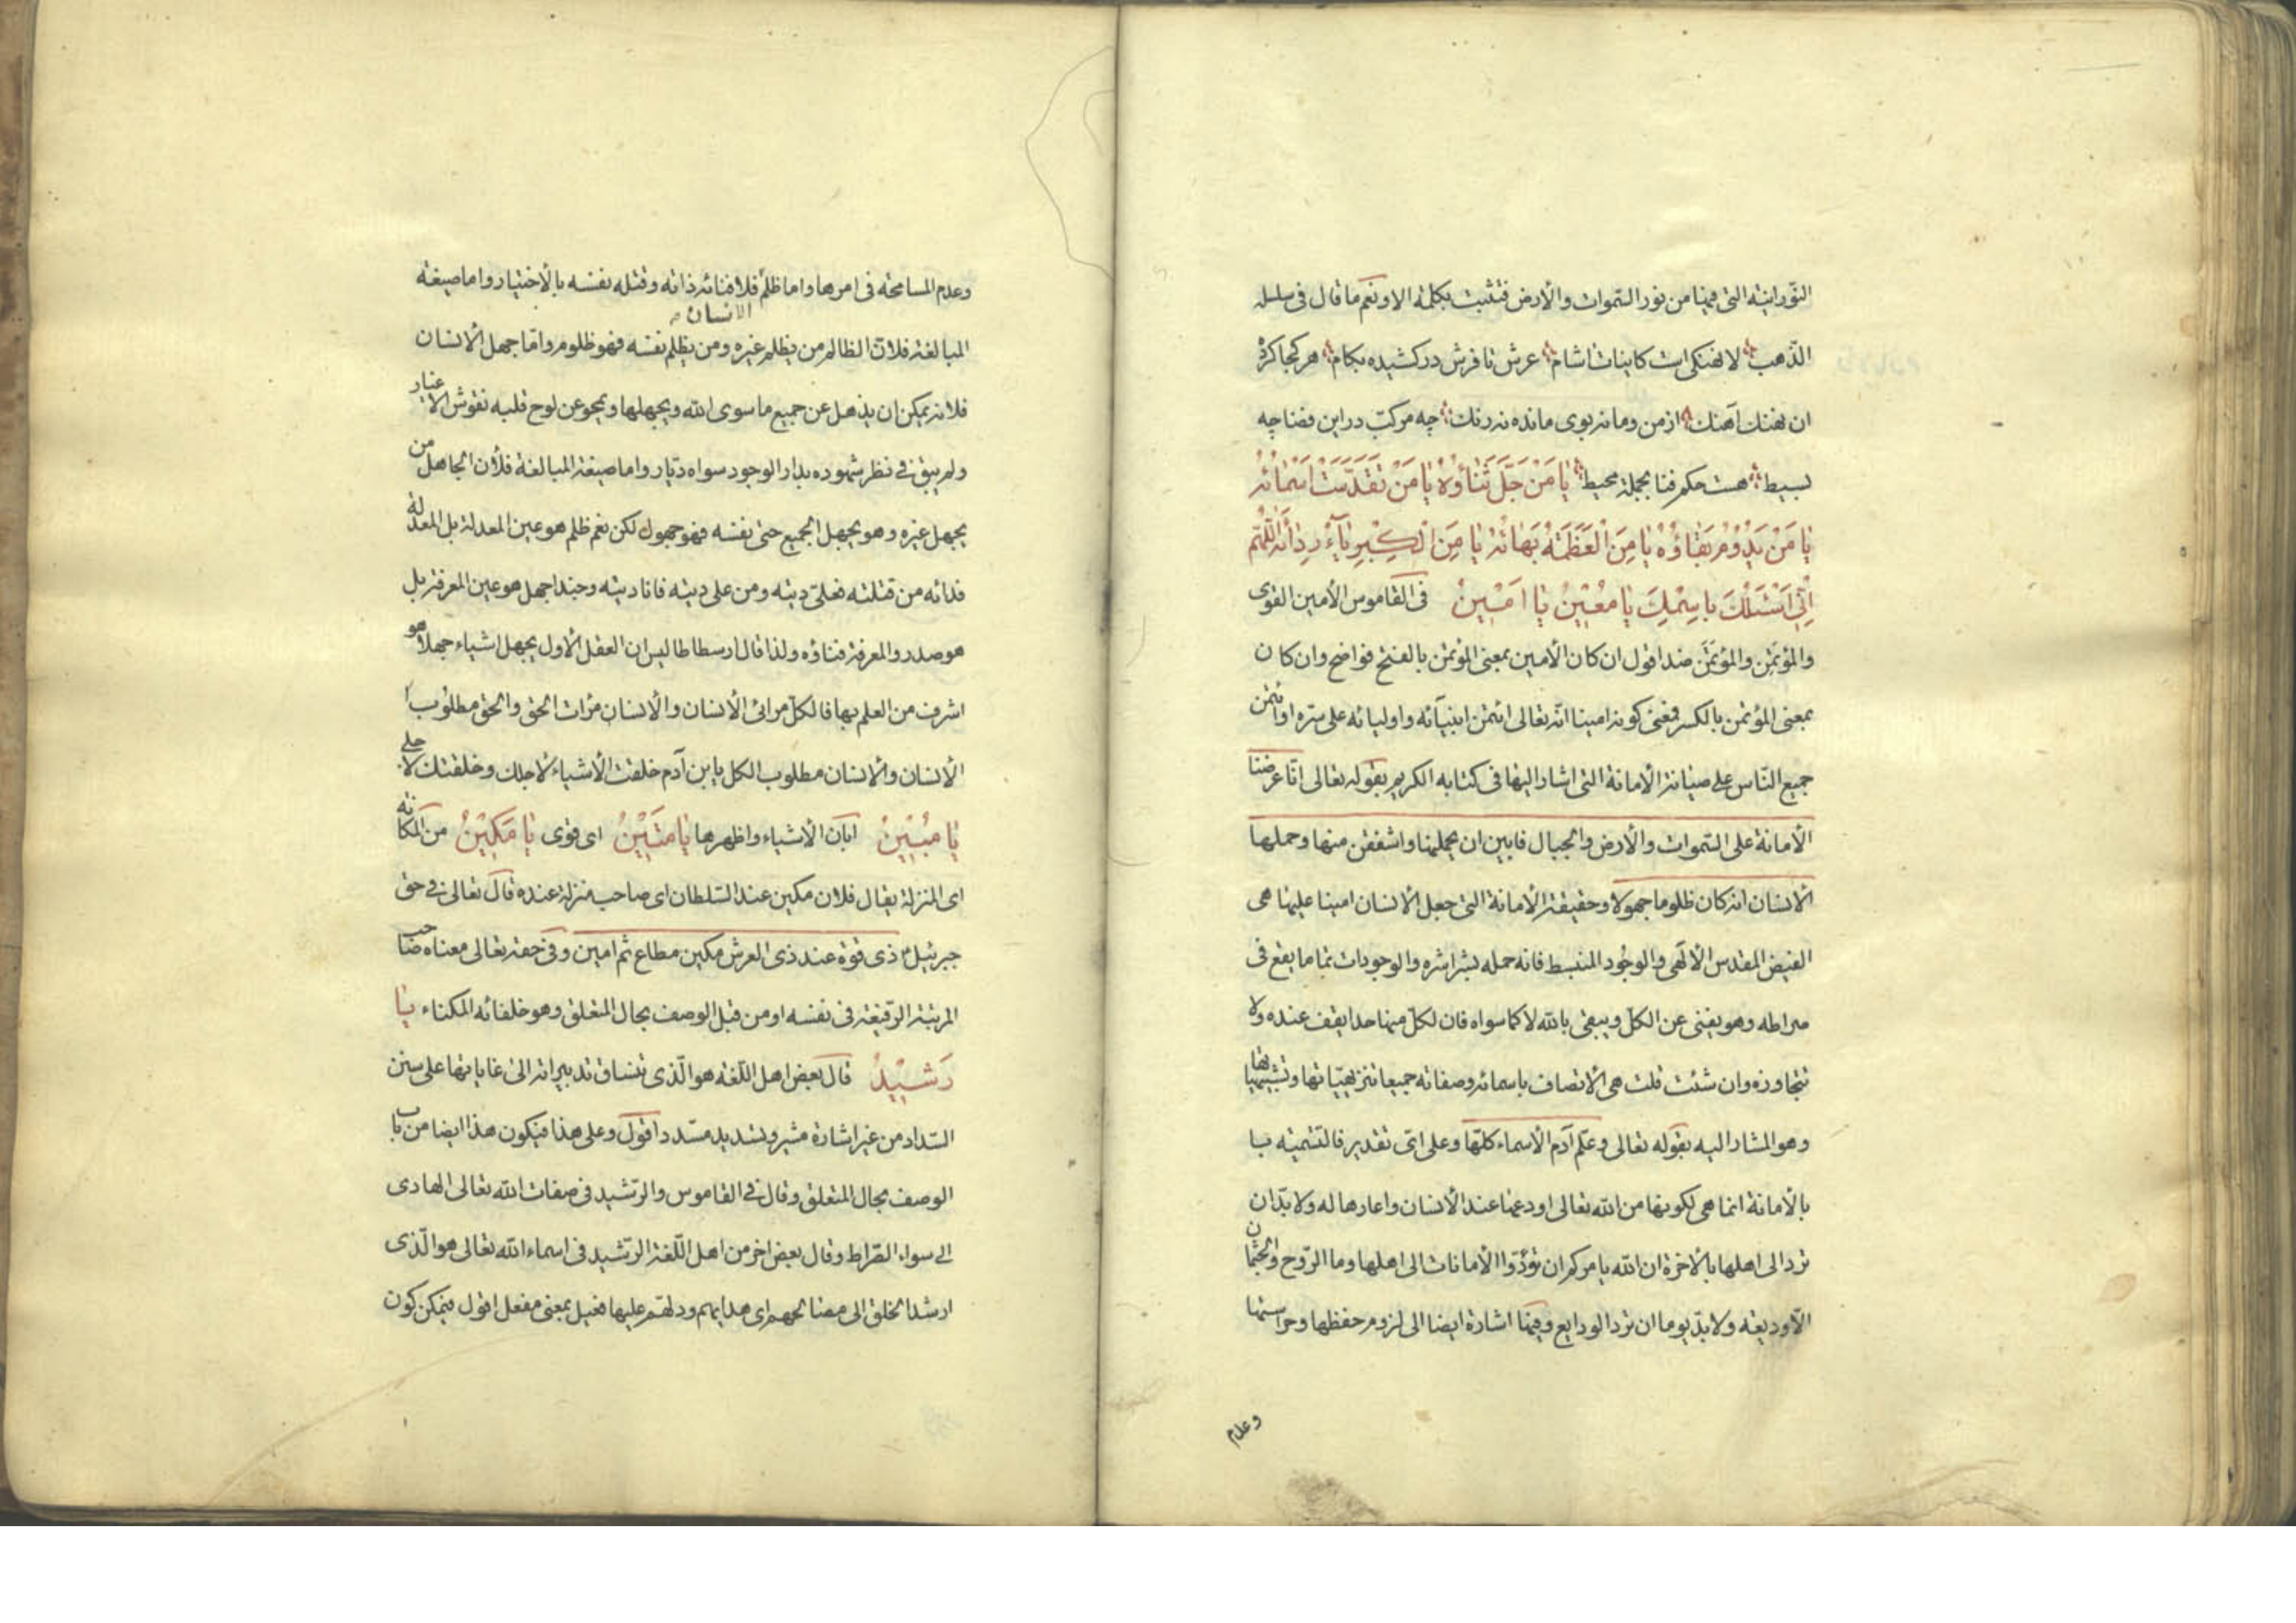 النّورانیة التی فینا من نور السّموات والأرض فتثبت بکلمة الا ونعم ما قال فی سلسلة
الذّهب لا نهنگی است کاینات اشام عرش تا فرش در کشیده بکام هر کجا کرده
ان نهنك آهنك از من وما نه بوی مانده نه رنك چه مرکب در این فضا چه
بسیط هست حکم فنا بجملة محیط یا مَنْ جَلَّ ثَناؤُهُ یا مَنْ تَقَدَّسَتْ اَسْمائُهُ
یا مَنْ یَدُومُ بَقاؤُهُ یا مَنِ الْعَظَمَةُ بَهائُهُ یا مَنِ الْکِبْرِیآءُ رِدائُهُ اللّٰهُمَّ
اِنّی اَسْئَلُكَ بِاسْمِكَ یا مُعینُ یا اَمینُ فی القاموس الأمین القوی
والمؤتمِن والمؤتمَن ضد اقول ان کان الأمین بمعنی المؤتمن بالفتح فواضح وان کان
بمعنی المؤتمن بالکسر فمعنی کونه امینا انّه تعالی ائتمن انبیآئه واولیائه علی سرّه او ائتمن
جمیع النّاس علی صیانة الأمانة التی اشار الیها فی کتابه الکریم بقوله تعالی انّا عرضنا
الأمانة علی السّموات والأرض والجبال فابین ان یحملنها واشفقن منها وحملها
الأنسان انه کان ظلوما جهولا وحقیقة الأمانة التی جعل الأنسان امینا علیها هی
الفیض المقدس الألهی والوجود المنبسط فانه حمله بشراشره والوجودات تماما یقع فی
صراطه وهو یفنی عن الکلّ ویبقی بالله لا کما سواه فان لکلّ منها حدا یقف عنده ولا
تتجاوزه وان شئت قلت هی الأتصاف باسمائه وصفاته جمیعا تنزیهیّاتها وتشبیهیاتها
وهو المشار الیه بقوله تعالی وعلّم آدم الأسماء کلّها وعلی ایّ تقدیر فالتّسمیة با
بالأمانة انما هی لکونها من الله تعالی اودعها عند الأنسان واعارها له ولا بدّ ان
تردالی اهلها بالأخرة ان الله یامرکم ان تؤدّوا الأمانات الی اهلها وما الرّوح والجثمان
الّا ودیعة ولا بدّ یوما ان ترد الودایع وفیها اشارة ایضا الی لزوم حفظها وحراستها
وعدم
وعدم المسامحة فی امرها واما ظلم الانسان فلافنائه ذاته وقتله نفسه بالأختیار واما صیغة
المبالغة فلأن الظالم من یظلم غیره ومن یظلم نفسه فهو ظلوم وامّا جهل الأنسان
فلانه یمکن ان یذهل عن جمیع ما سوی الله ویجهلها ویمحو عن لوح قلبه نقوش الاغیار
ولم یبق فی نظر شهوده بدار الوجود سواه دیّار واما صیغة المبالغة فلأن الجاهل من
یجهل غیره وهو یجهل الجمیع حتی نفسه فهو جهول لکن نعم ظلم هو عین المعدلة بل المعدلة
فدائه من قتلته فعلیّ دیته ومن علی دیته فانا دیته وحبذا جهل هو عین المعرفة بل
هو صدر والمعرفة فناؤه ولذا قال ارسطاطالیس ان العقل الأول یجهل اشیاء جهلا هو
اشرف من العلم بها فالکلّ مرائی الأنسان والأنسان مرات الحق والحق مطلوب
الأنسان والانسان مطلوب الکل یا بن آدم خلقت الأشیاء لاجلك وخلقتك لاجلی
یا مُبینُ ابان الأشیاء واظهرها یا مَتینُ ای قوی یا مَکینُ من المکانة
ای المنزلة یقال فلان مکین عند السّلطان ای صاحب منزلة عنده قال تعالی فی حق
جبرئیل ذی قوة عند ذی العرش مکین مطاع ثم امین وفی حقه تعالی معناه صاحب
المرتبة الرّفیعة فی نفسه او من قبل الوصف بحال المتعلق وهو خلفائه المکناء یا
رَشیدُ قال بعض اهل اللّغة هو الّذی تنساق تدبیراته الی غایاتها علی سنن
السّداد من غیر اشارة مشیر وتسدید مسدد اقول وعلی هذا فیکون هذا ایضا من باب
الوصف بحال المتعلق وقال فی القاموس والرّشید فی صفات الله تعالی الهادی
الی سواء الصّراط وقال بعض اخر من اهل اللّغة الرّشید فی اسماء الله تعالی هو الّذی
ارشد الخلق الی مصالحهم ای هدایهم ودلهم علیها فعیل بمعنی مفعل اقول فیمکن کون